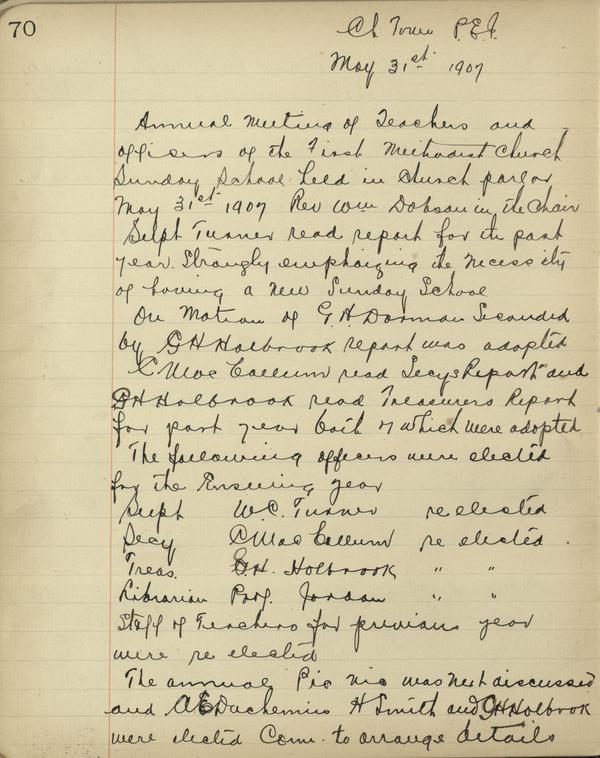 70
Ch Town P.E.I.
May 31st 1907
Annual Meeting of Teachers and
officers of the First Methodist Church
Sunday School held in Church parlor
May 31st 1907 Rev Wm Dobson in the Chair
Supt Turner read report for the past
year. Strongly emphazing the necessity
of having a new Sunday School
On Motion of G.H Dorman Seconded
by GH Holbrook report was adopted
C. MacCallum read Secys Report and
GH Holbrook read Treasurers Report
for past year both of which were adopted
The following officers were elected
for the Ensuing year
Supt W.C. Turner re elected
Secy C MacCallum re elected.
Treas. G.H. Holbrook " "
Librarian Prof. Jordan " "
Staff of Teachers for previous year
were re elected
The annual Pic nic was next discussed
and A.E. Duchemin H Smith and GH Holbrook
were elected Com. to arrange details